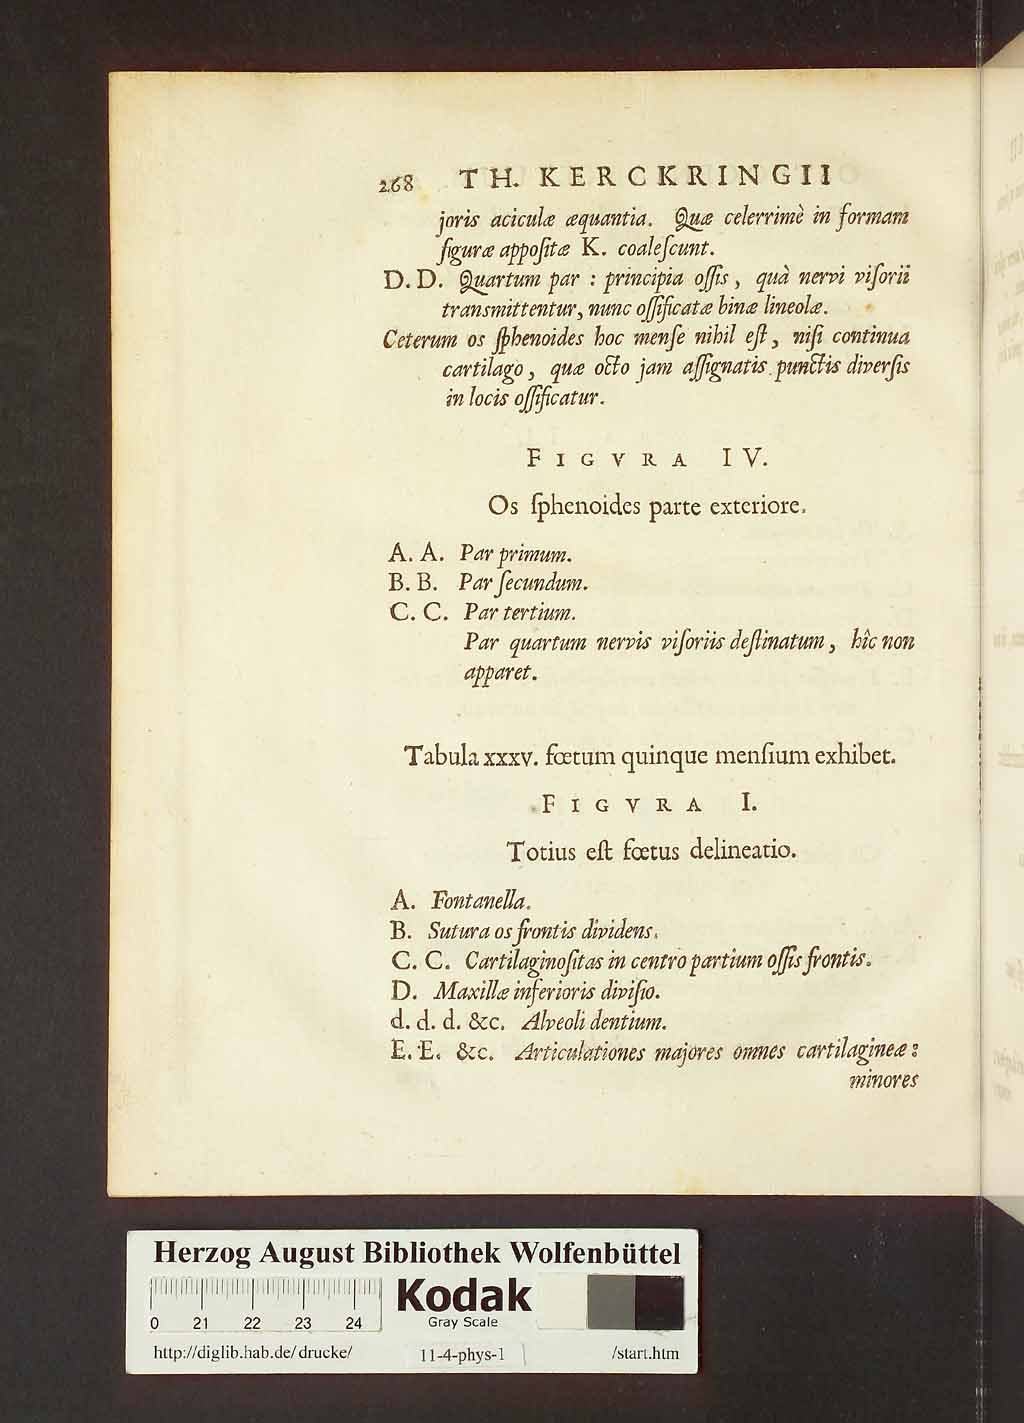 268 TH. KERCKRINGII
joris aciculæ æquantia. Quæ celerrimè in formam
figuræ appoſitæ K. coaleſcunt.
D. D. Quartum par : principia oſſis, quà nervi viſorii
transmittentur, nunc oſſificatæ binæ lineolæ.
Ceterum os ſphenoides hoc menſe nihil eſt, niſi continua
cartilago, quæ octo jam aſſignatis punctis diverſis
in locis oſſificatur.
FIGVRA IV.
Os ſphenoides parte exteriore.
A. A. Par primum.
B. B. Par ſecundum.
C. C. Par tertium.
Par quartum nervis viſoriis deſtinatum, hîc non
apparet.
Tabula xxxv. fœtum quinque menſium exhibet.
FIGVRA I.
Totius eſt fœtus delineatio.
A. Fontanella.
B. Sutura os frontis dividens.
C. C. Cartilaginoſitas in centro partium oſſis frontis.
D. Maxillæ inferioris diviſio.
d. d. d. &c. Alveoli dentium.
E. E. &c. Articulationes majores omnes cartilagineæ:
minores
Herzog August Bibliothek Wolfenbüttel
Kodak
Gray Scale
0 21 22 23 24
http://diglib.hab.de/drucke/ 11-4-phys-1 /start.htm